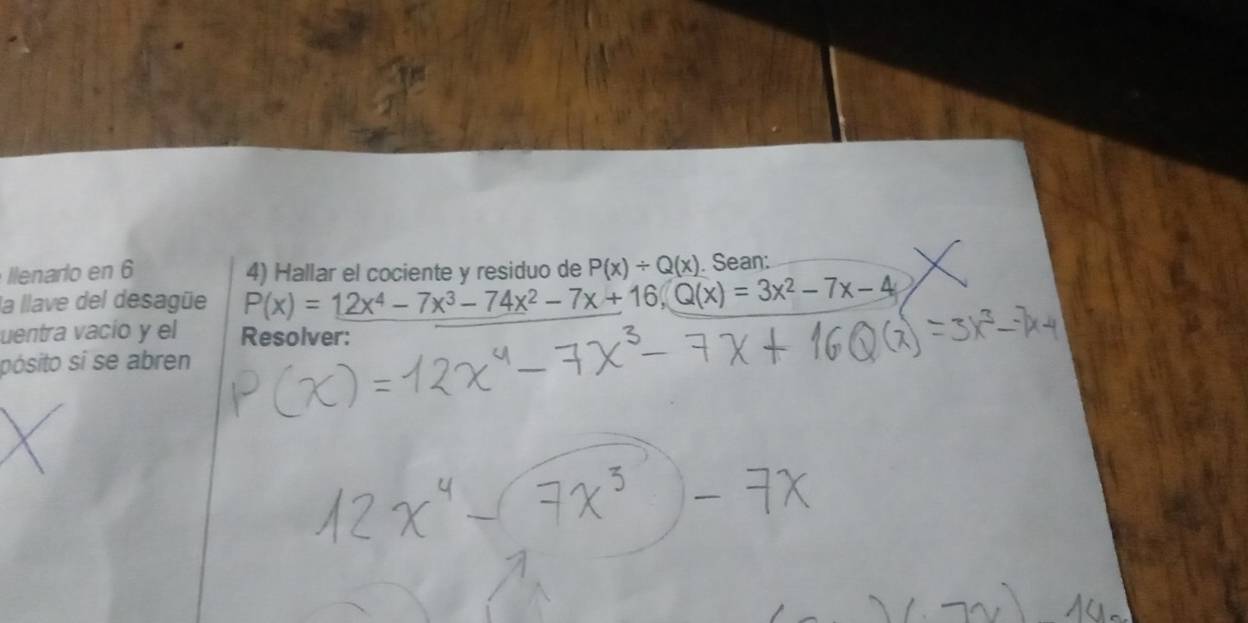 llenarlo en 6
la llave del desagüe
uentra vacio y el
pósito si se abren
4) Hallar el cociente y residuo de P(x) ÷ Q(x). Sean:
P(x) = 12x⁴ − 7x³ − 74x² − 7x + 16, Q(x) = 3x² − 7x − 4
Resolver:
P(x) = 12x⁴ − 7x³ − 7x + 16 Q(x) = 3x³ − 7x − 4
12x⁴ − 7x³ − 7x